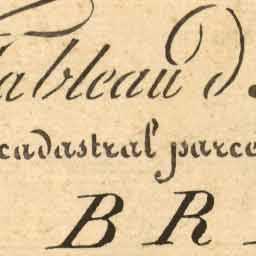 Tableau d
cadastral parce
B R